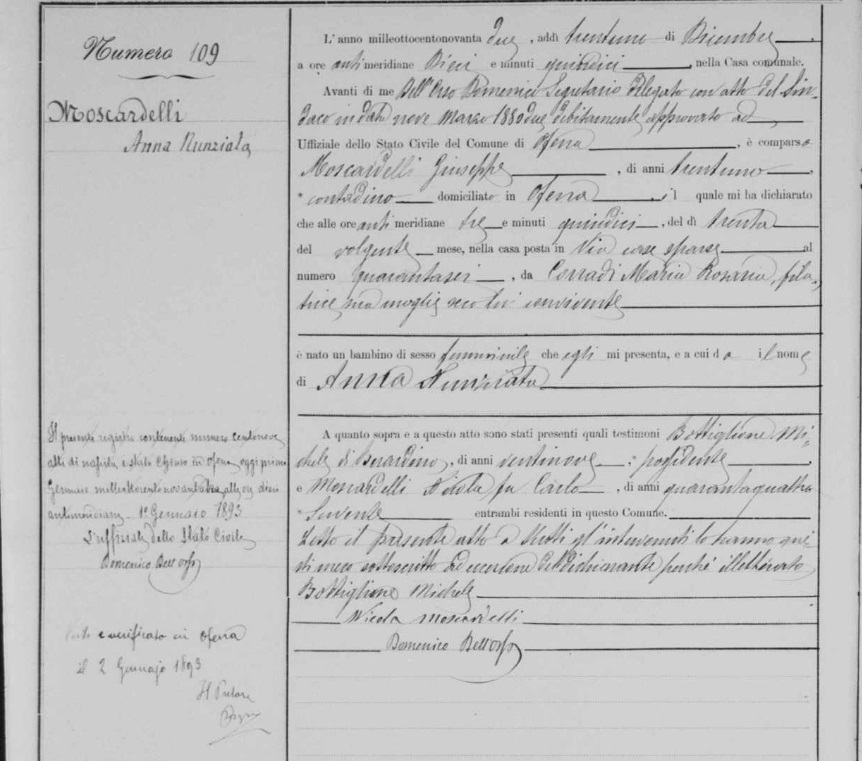 Numero 109
Moscardelli
Anna Nunziata
L'anno milleottocentonovanta due, addì trentuno di Dicembre,
a ore anti meridiane Dieci e minuti quindici, nella Casa comunale.
Avanti di me Dell'Orso Domenico Segretario Delegato con atto del Sin-
daco in data nove Marzo 1880due debitamente approvato ad
Uffiziale dello Stato Civile del Comune di Ofena, è comparso
Moscardelli Giuseppe, di anni trentuno,
contadino domiciliato in Ofena, il quale mi ha dichiarato
che alle ore anti meridiane tre e minuti quindici, del dì trenta
del volgente mese, nella casa posta in Via case sparse al
numero quarantasei, da Corradi Maria Rosaria, fila-
trice, sua moglie seco lui convivente
è nato un bambino di sesso femminile che egli mi presenta, e a cui da il nome
di Anna Nunziata
A quanto sopra e a questo atto sono stati presenti quali testimoni Bottiglione Mi-
chele di Berardino, di anni ventinove, possidente,
e Moscardelli Nicola fu Carlo, di anni quarantaquattro
Servente entrambi residenti in questo Comune.
Letto il presente atto a tutti gl'intervenuti lo hanno quin-
di meco sottoscritto ad eccezione del dichiarante perché illetterato
Bottiglione Michele
Nicola Moscardelli
Domenico Dell'Orso
Il presente registro contenente numero centonove
atti di nascita è stato chiuso in Ofena oggi primo
Gennaio milleottocentonovantatre alle ore dieci
antimeridiane 1° Gennaio 1893
L'uffiziale dello Stato Civile
Domenico Dell'Orso
e verificato in Ofena
il 2 Gennajo 1893
Il Pretore